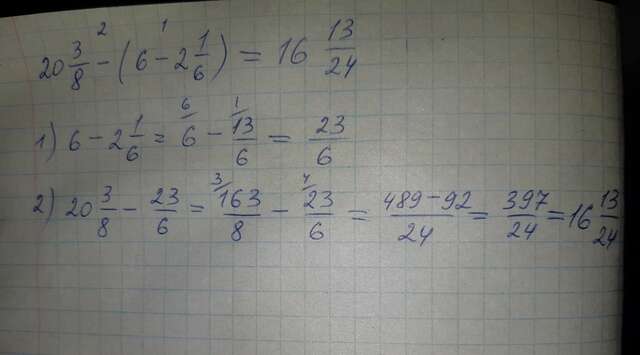 20 3/8 - (6 - 2 1/6) = 16 13/24
1) 6 - 2 1/6 = 6 - 13/6 = 23/6
2) 20 3/8 - 23/6 = 163/8 - 23/6 = 489-92/24 = 397/24 = 16 13/24